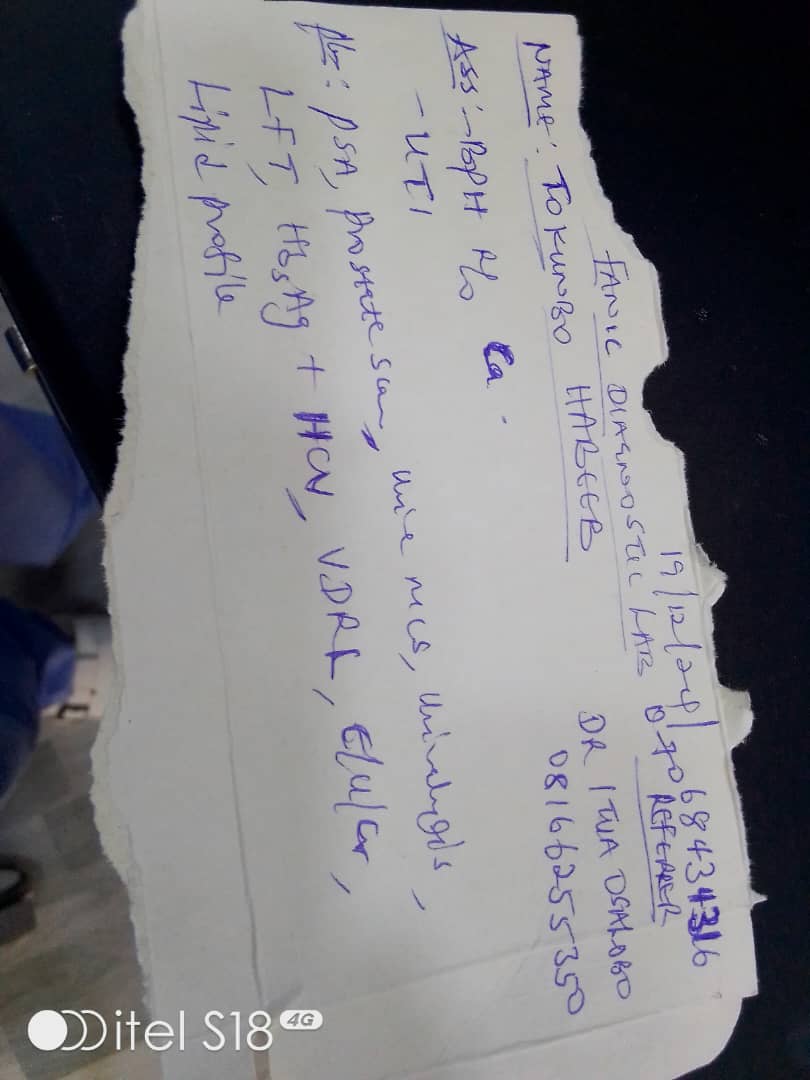 19/12/24
07068434316
FANIC DIAGNOSTIC LAB
REFERRER
NAME: TOKUNBO HABEEB
DR ITUA OSALOBO
08166255350
ASS:- BPH R/o Ca.
- UTI
Plz: PSA, Prostate scan, Urine mcs, Urinalysis,
LFT, HbsAg + HCV, VDRL, E/U/Cr,
Lipid profile
itel S18 4G